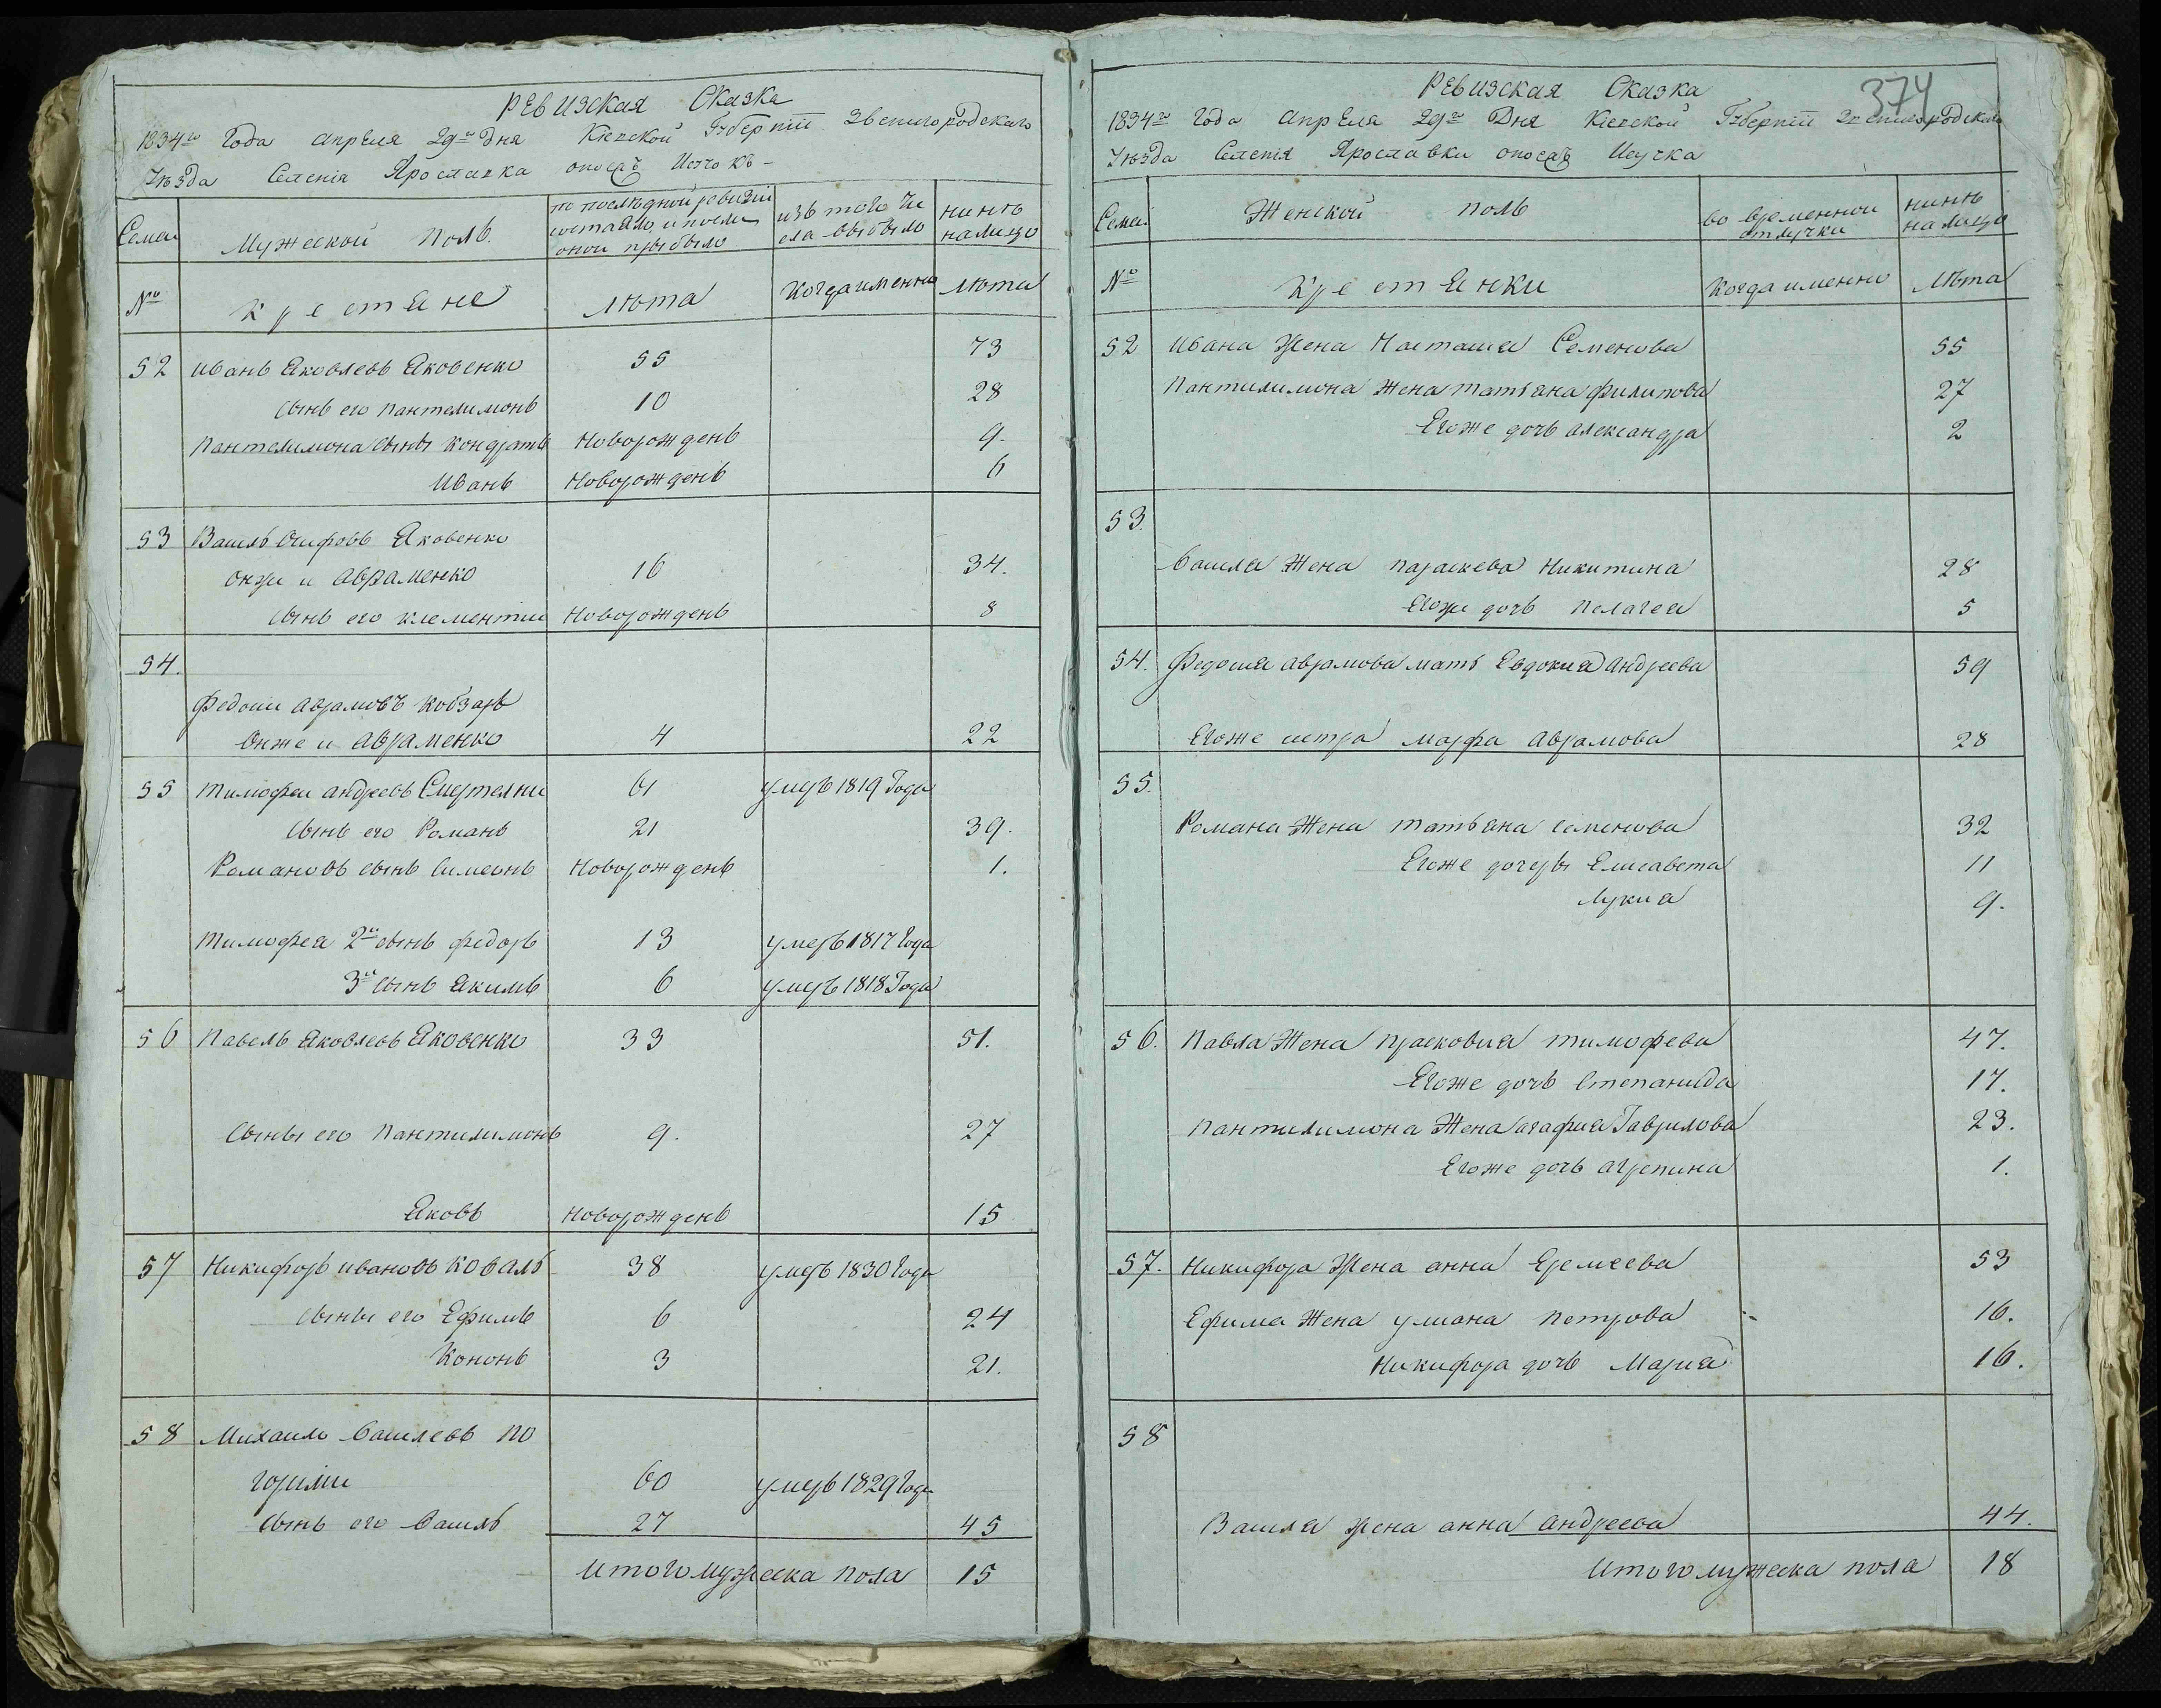 Ревизская Сказка
1834го Года Апреля 29го Дня Кіевской Губерніи Звенигородскаго
Уѣзда Селенія Ярославка
Семьи
Мужеской полъ.
по послѣдной ревизіи
состаяло, и после
оной прыбыло
изъ того чи
сла выбыло
нинѣ
налицо
№
Крестяне
лѣта
Когда именно
лѣта
52 иванъ Яковлевъ Яковенко 55 73
сынъ его пантелимонъ 10 28
пантелимона сынъ кондратъ новорожденъ 9.
иванъ новорожденъ 6
53 Василь Яковенко
онже и Авраменко 16 34.
сынъ его клементии новорожденъ 8
54.
Федосии аврамовъ кобзаръ
онже и авраменко 4 22
55 тимофеи андреевъ 61 умеръ 1819 Года
сынъ его Романъ 21 39.
Романовъ сынъ симеонъ новорожденъ 1.
тимофея 2й сынъ федоръ 13 умеръ 1817 Года
3й сынъ якимъ 6 умеръ 1818 Года
56 павелъ Яковлевъ Яковенко 33 51.
сыны его пантилимонъ 9. 27
Яковъ новорожденъ 15
57 Никифоръ ивановъ коваль 38 умеръ 1830 Года
сыны его Ефимъ 6 24
кононъ 3 21.
58 Михаило василевъ по
60 умеръ 1829 Года
сынъ его василь 27 45
итого мужеска пола 15
374
Ревизская Сказка
1834го Года апреля 29го Дня Кіевской Губерніи Звенигородскаго
Уѣзда Селенія Ярославки
Семьи.
Женской полъ
во временной
отлучки
нинѣ
налицо
№
Крестянки
когда именно
лѣта
52 ивана жена Насташа Семенова 55
пантилимона жена татьяна филипова 27
Егоже дочъ александра 2
53.
василя жена параскева никитина 28
егоже дочъ пелагея 5
54. Федосия аврамова мать Евдокия андреева 59
Егоже систра марфа аврамова 28
55.
Романа жена татьяна семенова 32
Егоже дочеры Елисавета 11
лукия 9.
56. павла жена прасковия тимофева 47.
Егоже дочъ степанида 17.
пантилимона жена агафия Гаврилова 23.
Егоже дочъ агрепина 1.
57. Никифора жена анна Еремеева 53
Ефима жена улиана петрова 16.
никифора дочъ Мария 16.
58
Василя жена анна андреева 44.
итого мужеска пола 18